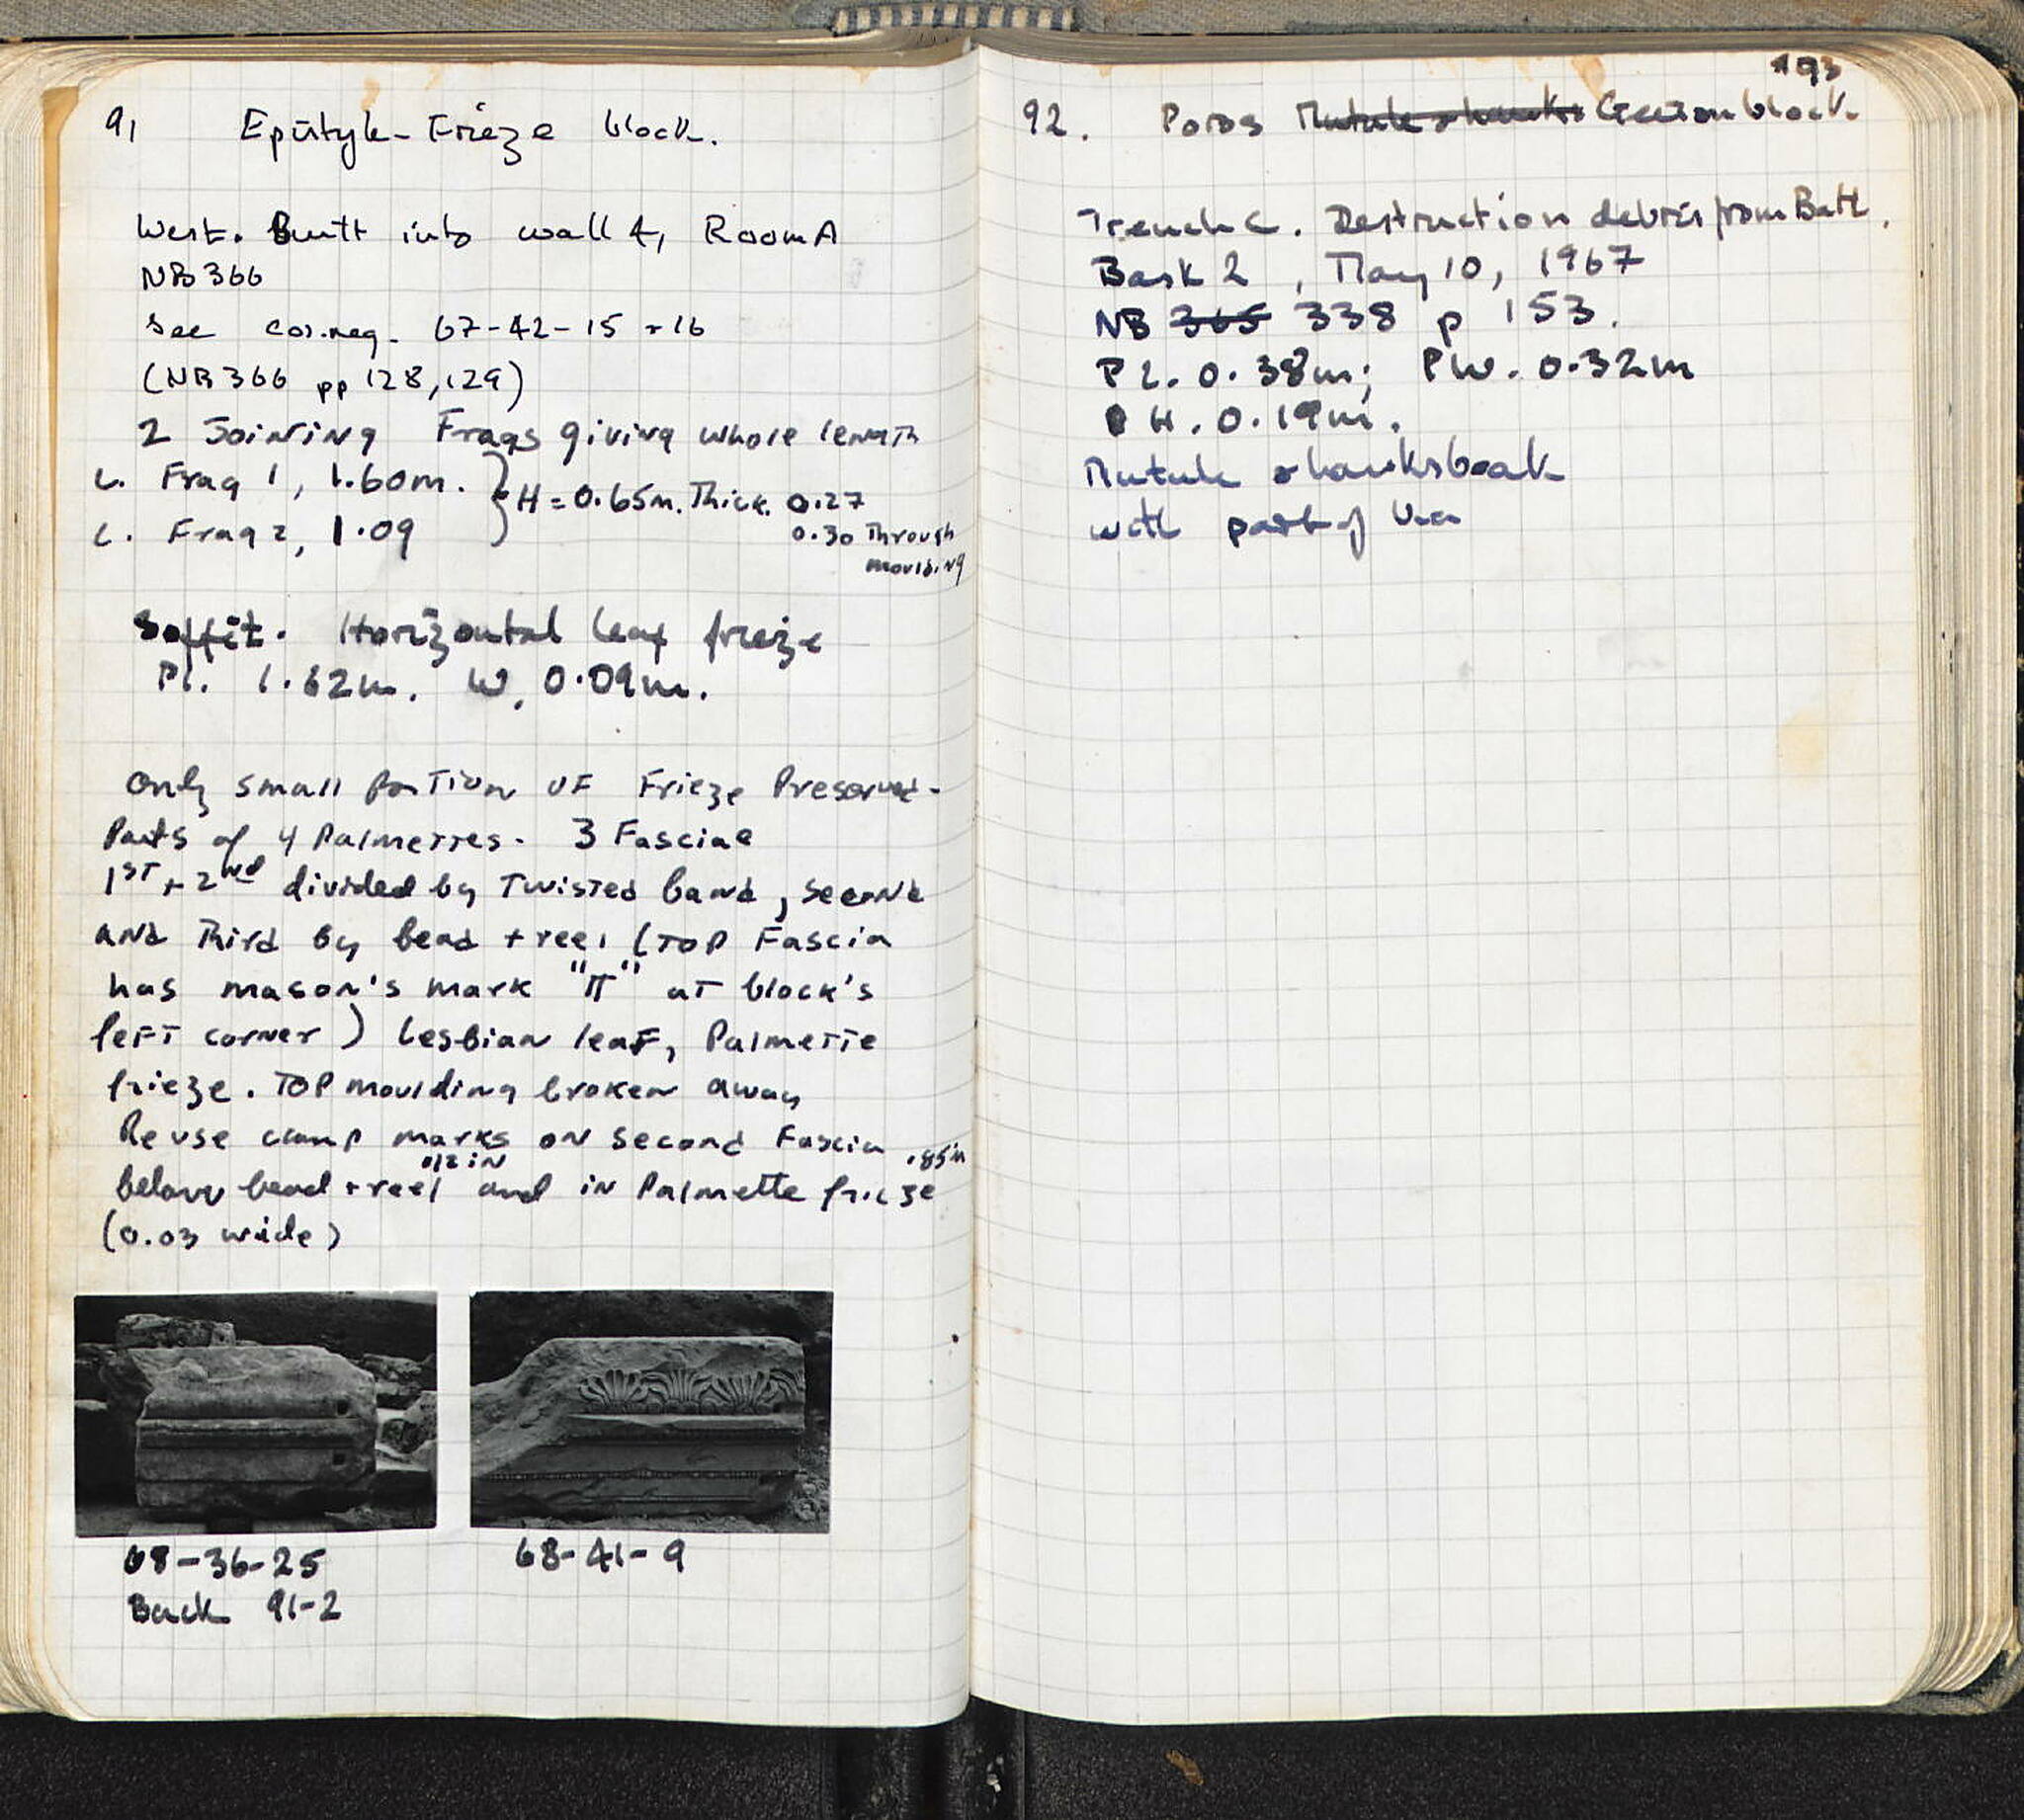 91 Epistyle-Frieze block.
West. Built into wall 4, Room A
NB 366
See cor. neg. 67-42-15 + 16
(NB 366 pp 128, 129)
2 Joining Frags giving whole length
L. Frag 1, 1.60m.
H = 0.65m. Thick. 0.27
L. Frag 2, 1.09
0.30 Through
moulding
Soffit. Horizontal leaf frieze
Pl. 1.62m. W. 0.09m.
Only small portion of Frieze Preserved.
Parts of 4 Palmettes. 3 Fasciae
1st + 2nd divided by Twisted band, second
and Third by bead + reel (Top Fascia
has mason's mark "π" at block's
left corner) Lesbian leaf, Palmette
frieze. Top moulding broken away
Reuse clamp marks on second Fascia .85m
below bead + reel and in Palmette frieze
(0.03 wide)
68-36-25
Back 91-2
68-41-9
193
92. Poros Mutule + hawks Geison block.
Trench C. Destruction debris from Bath.
Bask 2, May 10, 1967
NB 365 338 p 153.
PL. 0.38m; PW. 0.32m
H. 0.19m.
Mutule + hawksbeak
with part of